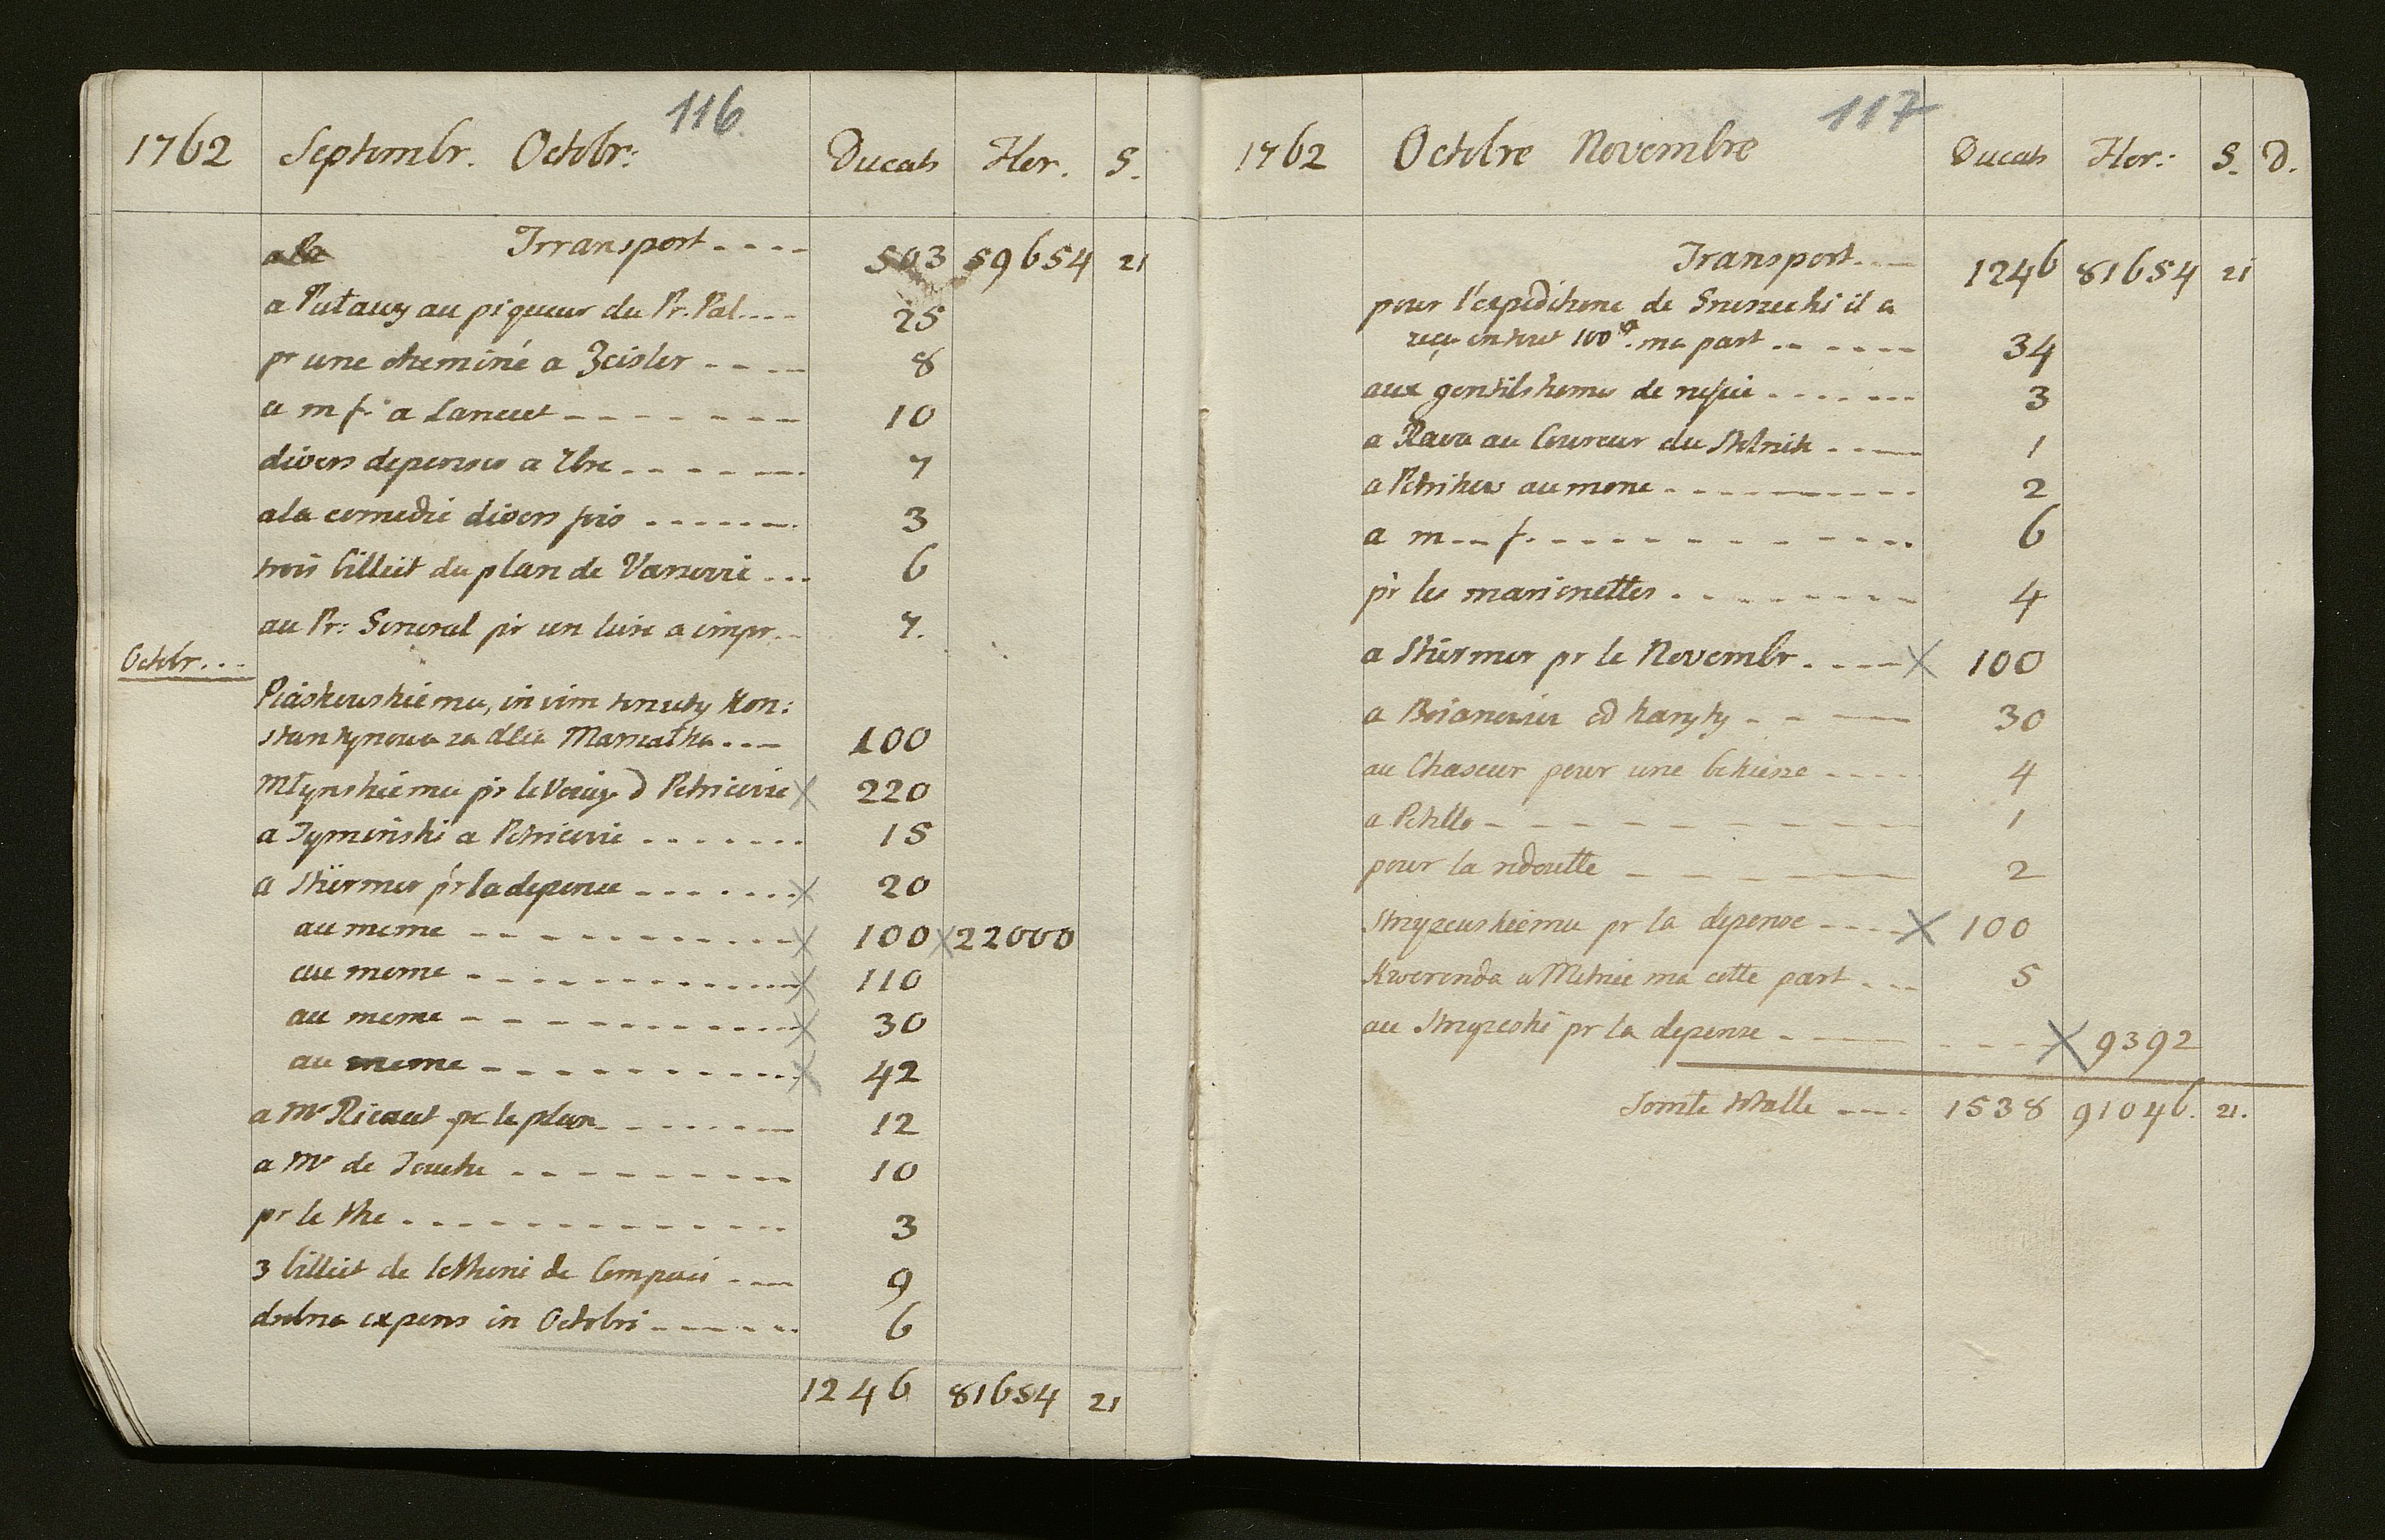 116
1762 Septembr. Octobr: Ducats Flor. S.
a la Trransport 503 59654 21
a Putawy au piqueur du Pr. Pal. 25
pr une cheminé a Zeisler 8
a m f. a Lancut 10
divers depenses a Lbre 7
a la comedie divers fois 3
trois billiet du plan de Varsovie 6
au Pr: General pr un livre a impr. 7.
Octobr...
Piaskowskiemu, in vim tenuty Kon:
stantynowa za dla Marszałka 100
Młynskiemu pr le Voiage d Petricovie X 220
a Tyminski a Petricovie 15
a Stürmer pr la depence X 20
au meme X 100 X 22000
au meme X 110
au meme X 30
au meme X 42
a Mr Ricaut pr le plan 12
a Mr de Touche 10
pr le the 3
3 billiet de lotherie de 9
drobne expens in Octobri 6
1246 81654 21
117
1762 Octobre Novembre Ducats Flor: S. D.
Transport 1246 81654 21
pour l'expeditione de il a
reçu en tout 100 #. ma part 34
aux gentilshomes de 3
a Rava au Coureur du Stolnik 1
a Petrikow aumone 2
a m f. 6
pr les marionettes 4
a Stürmer pr le Novembr X 100
a od karyty 30
au Chaseur pour une bekiesze 4
a Petello 1
pour la redoutte 2
Stryzewskiemu pr la depense X 100
Kwerenda w Metrice ma cotte part 5
au pr la depense X 9392
Somte totalle 1538 91046. 21.